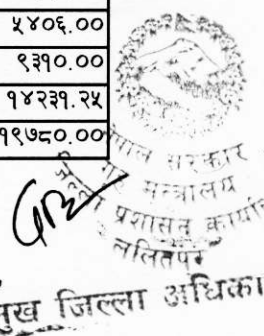 ५४०६.००
९३१०.००
१४२३१.२५
१९७८०.००
नेपाल सरकार
गृह मन्त्रालय
जिल्ला प्रशासन कार्या
ललितपुर
मुख जिल्ला अधिका